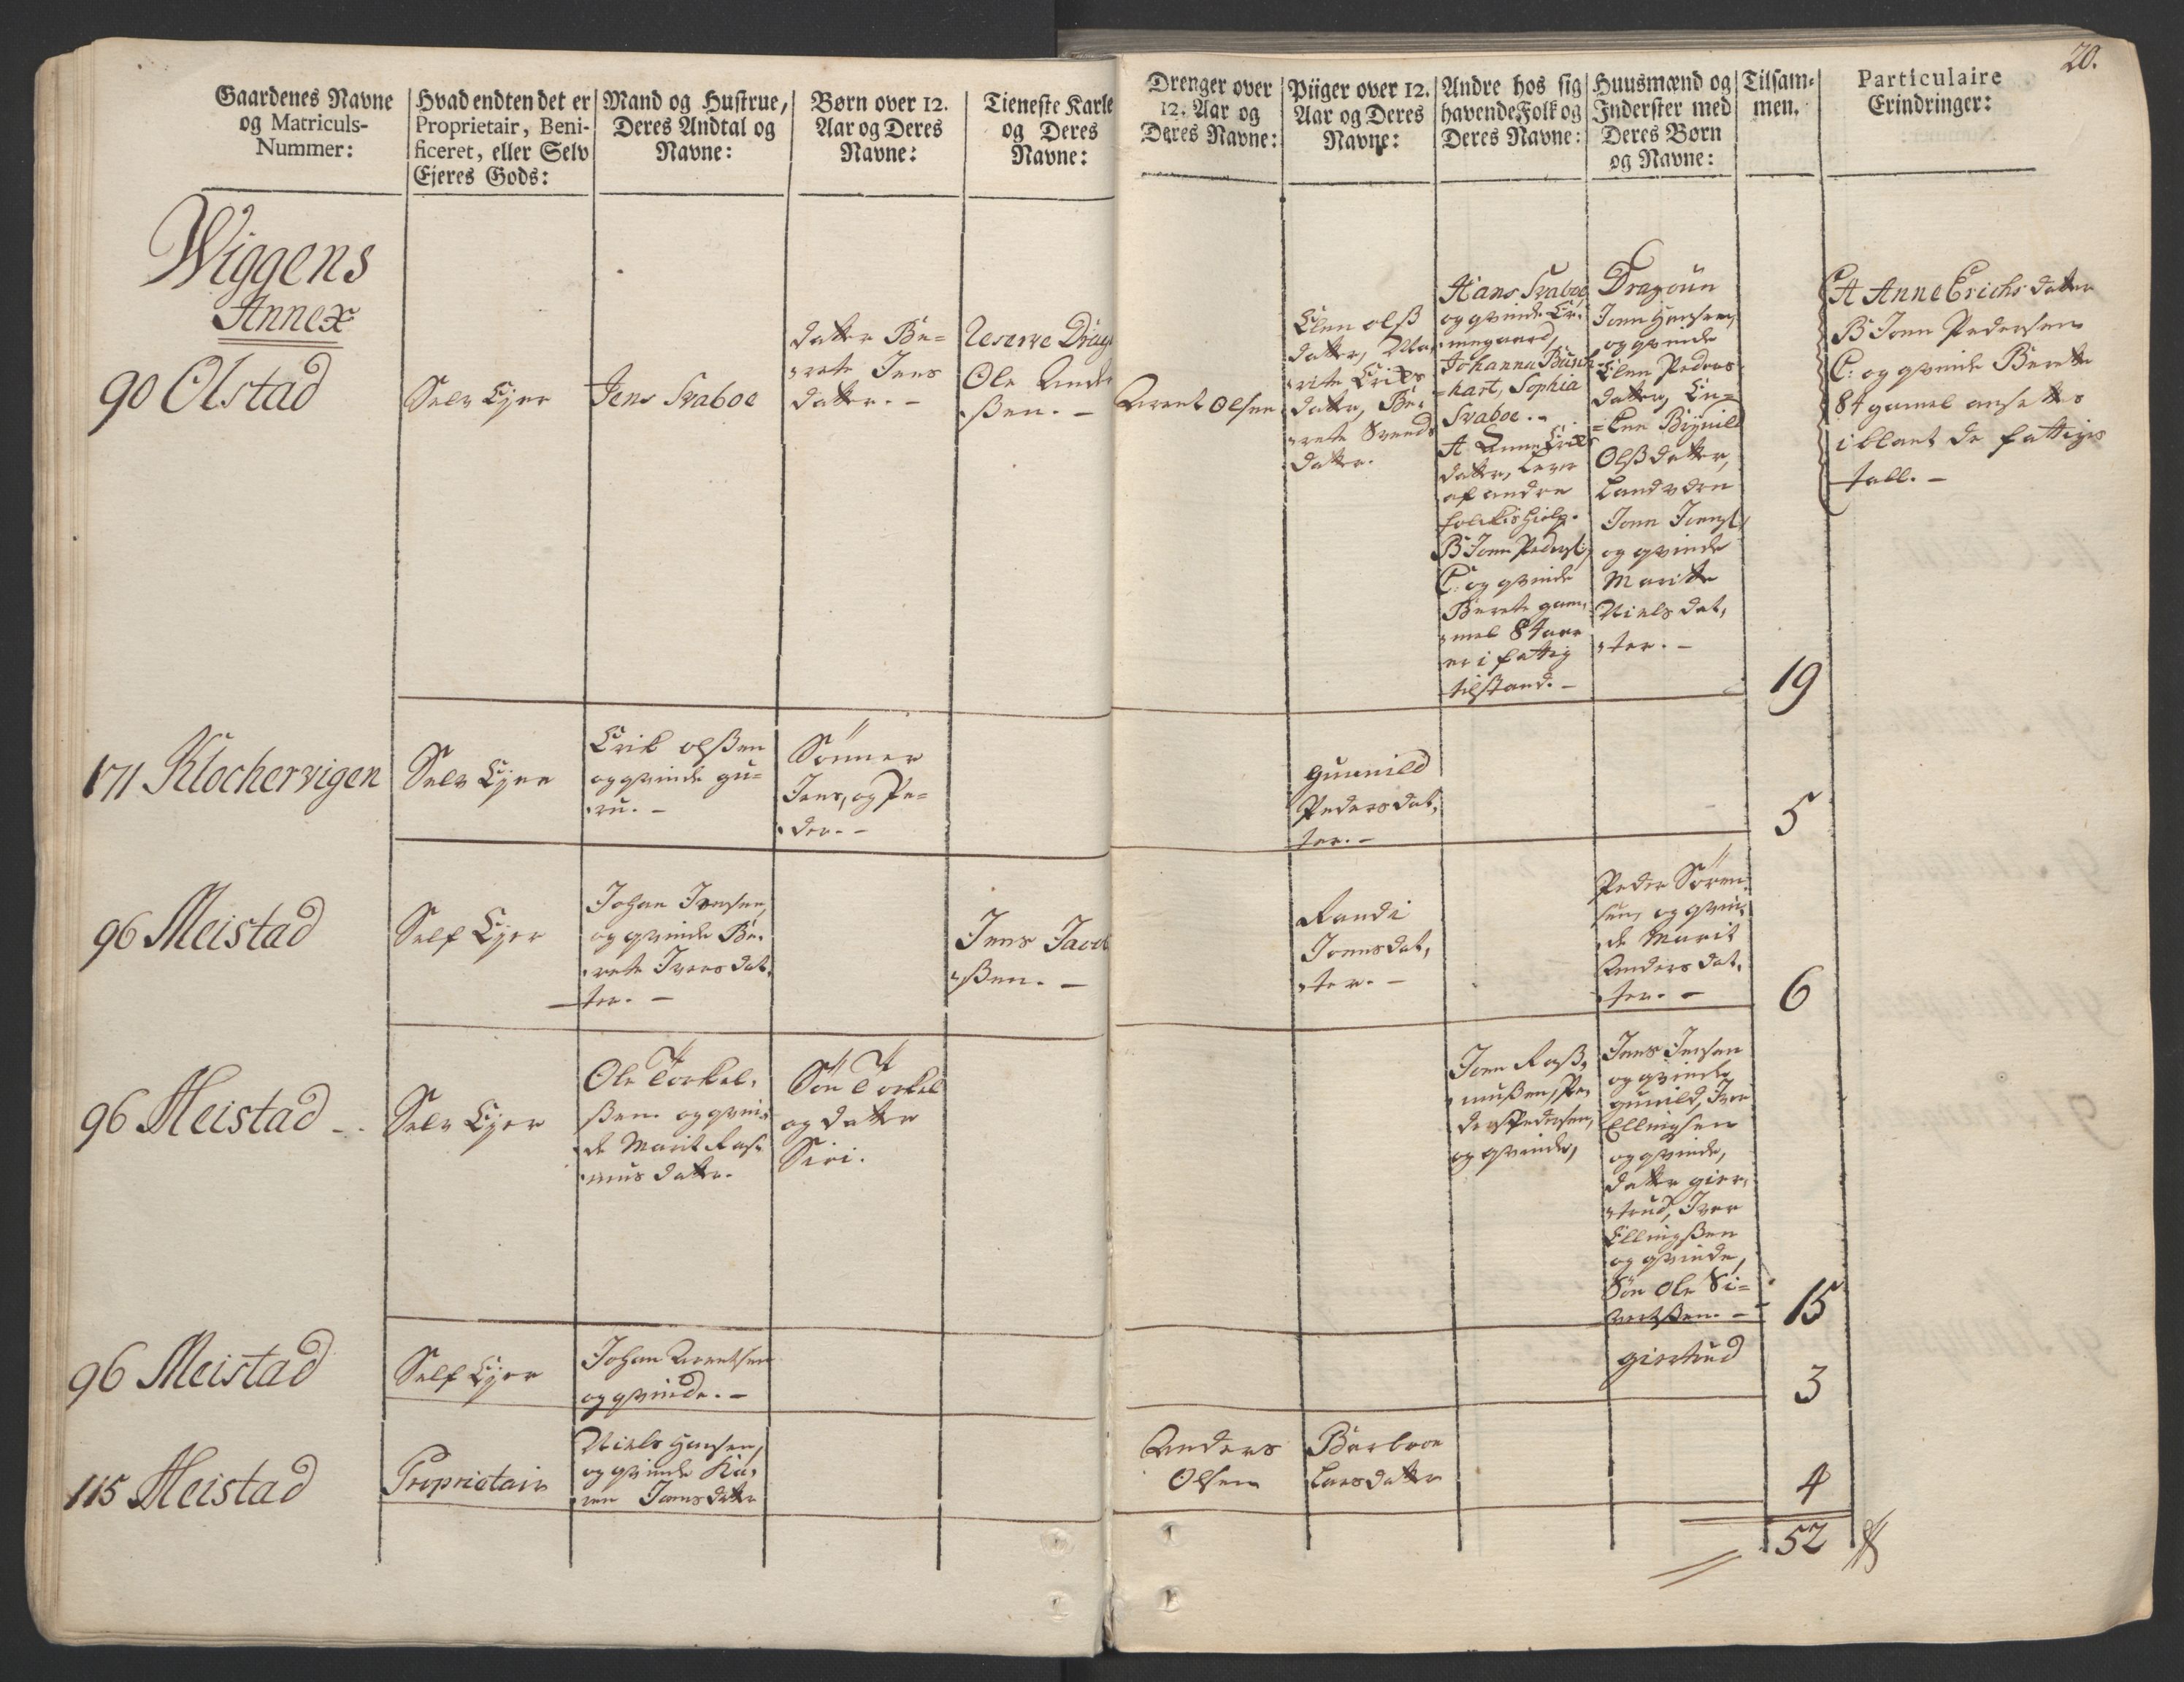 20.
Gaardenes Navne
og Matriculs-
Nummer:
Hvad endten det er
Proprietair, Beni-
ficeret, eller Selv
Ejeres Gods:
Mand og Hustrue,
Deres Andtal og
Navne:
Børn over 12.
Aar og Deres
Navne:
Tieneste Karle
og Deres
Navne:
Drenger over
12. Aar og
Deres Navne:
Piiger over 12.
Aar og Deres
Navne:
Andre hos sig
havende Folk og
Deres Navne:
Huusmænd og
Inderster med
Deres Børn
og Navne:
Tilsam-
men.
Particulaire
Erindringer:
Wiggens
Annex
90 Olstad
Selv Ejer
Jens Svaboe
datter Be=
rete Jens
datter. -
Reserve Drag
Ole Ander
ßen. -
Arent Olsen
Elen olß
datter, Ma
rite Erichs
datter, Be=
rete Svends
datter.
Hans Svaboe,
og qvinde
Johanna Busch
=hart, Sophia
Svaboe. -
A Anne Erichs
datter, lever
af andre
folkis hielp.
B Jonn Peders:
C: og qvinde
Berete gam=
mel 84 aar
er i fattig
tilstand. -
Dragoun
Jonn Hansen,
og qvinde
Elen Peders
datter, En=
=ken
Olßdatter,
Landværn
Jonn Joens:
og qvinde
Maritte
Niels dat,
ter. -
19
A Anne Erichs datter
B Jonn Pedersen
C: og qvinde Berette
84 gamel ansettes
iblant de fattiges
tall. -
171 Klochervigen
Selv Ejer
Erik olßen
og qvinde gu=
ru. -
Sønner
Jens, og Pe=
der. -
gunnild
Pedersdat,
ter. -
5
96 Meistad
Self Ejer
Johan Iversen,
og qvinde Be=
rete Iversdat,
ter. -
Jens Jacob
ßen. -
Randi
Jonnsdat,
ter. -
Peder Søren
sen, og qvin,
de Marit
Andersdat,
ter. -
6
96 Meistad -
Selv Ejer
Ole Torkel,
ßen og qvin=
de Marit Ras=
mus datter.
Søn Torkel
og datter
Siri.
Jonn Raß,
mußen, Pe,
der Pedersen,
og qvinde,
Jens Jensen
og qvinde
gunild, Iver
Ellingsen
og qvinde,
datter gier,
trud, Iver
Ellingßen
og qvinde,
Søn Ole Si=
vertßen. -
15
96 Meistad
Self Ejer
Johan Arentsen
og qvinde. -
giertrud
3
115 Meistad
Proprietair
Niels Hansen,
og qvinde Ka,
ren Jonsdatter
Anders
Olsen
Barbroe
Larsdatter
4
52